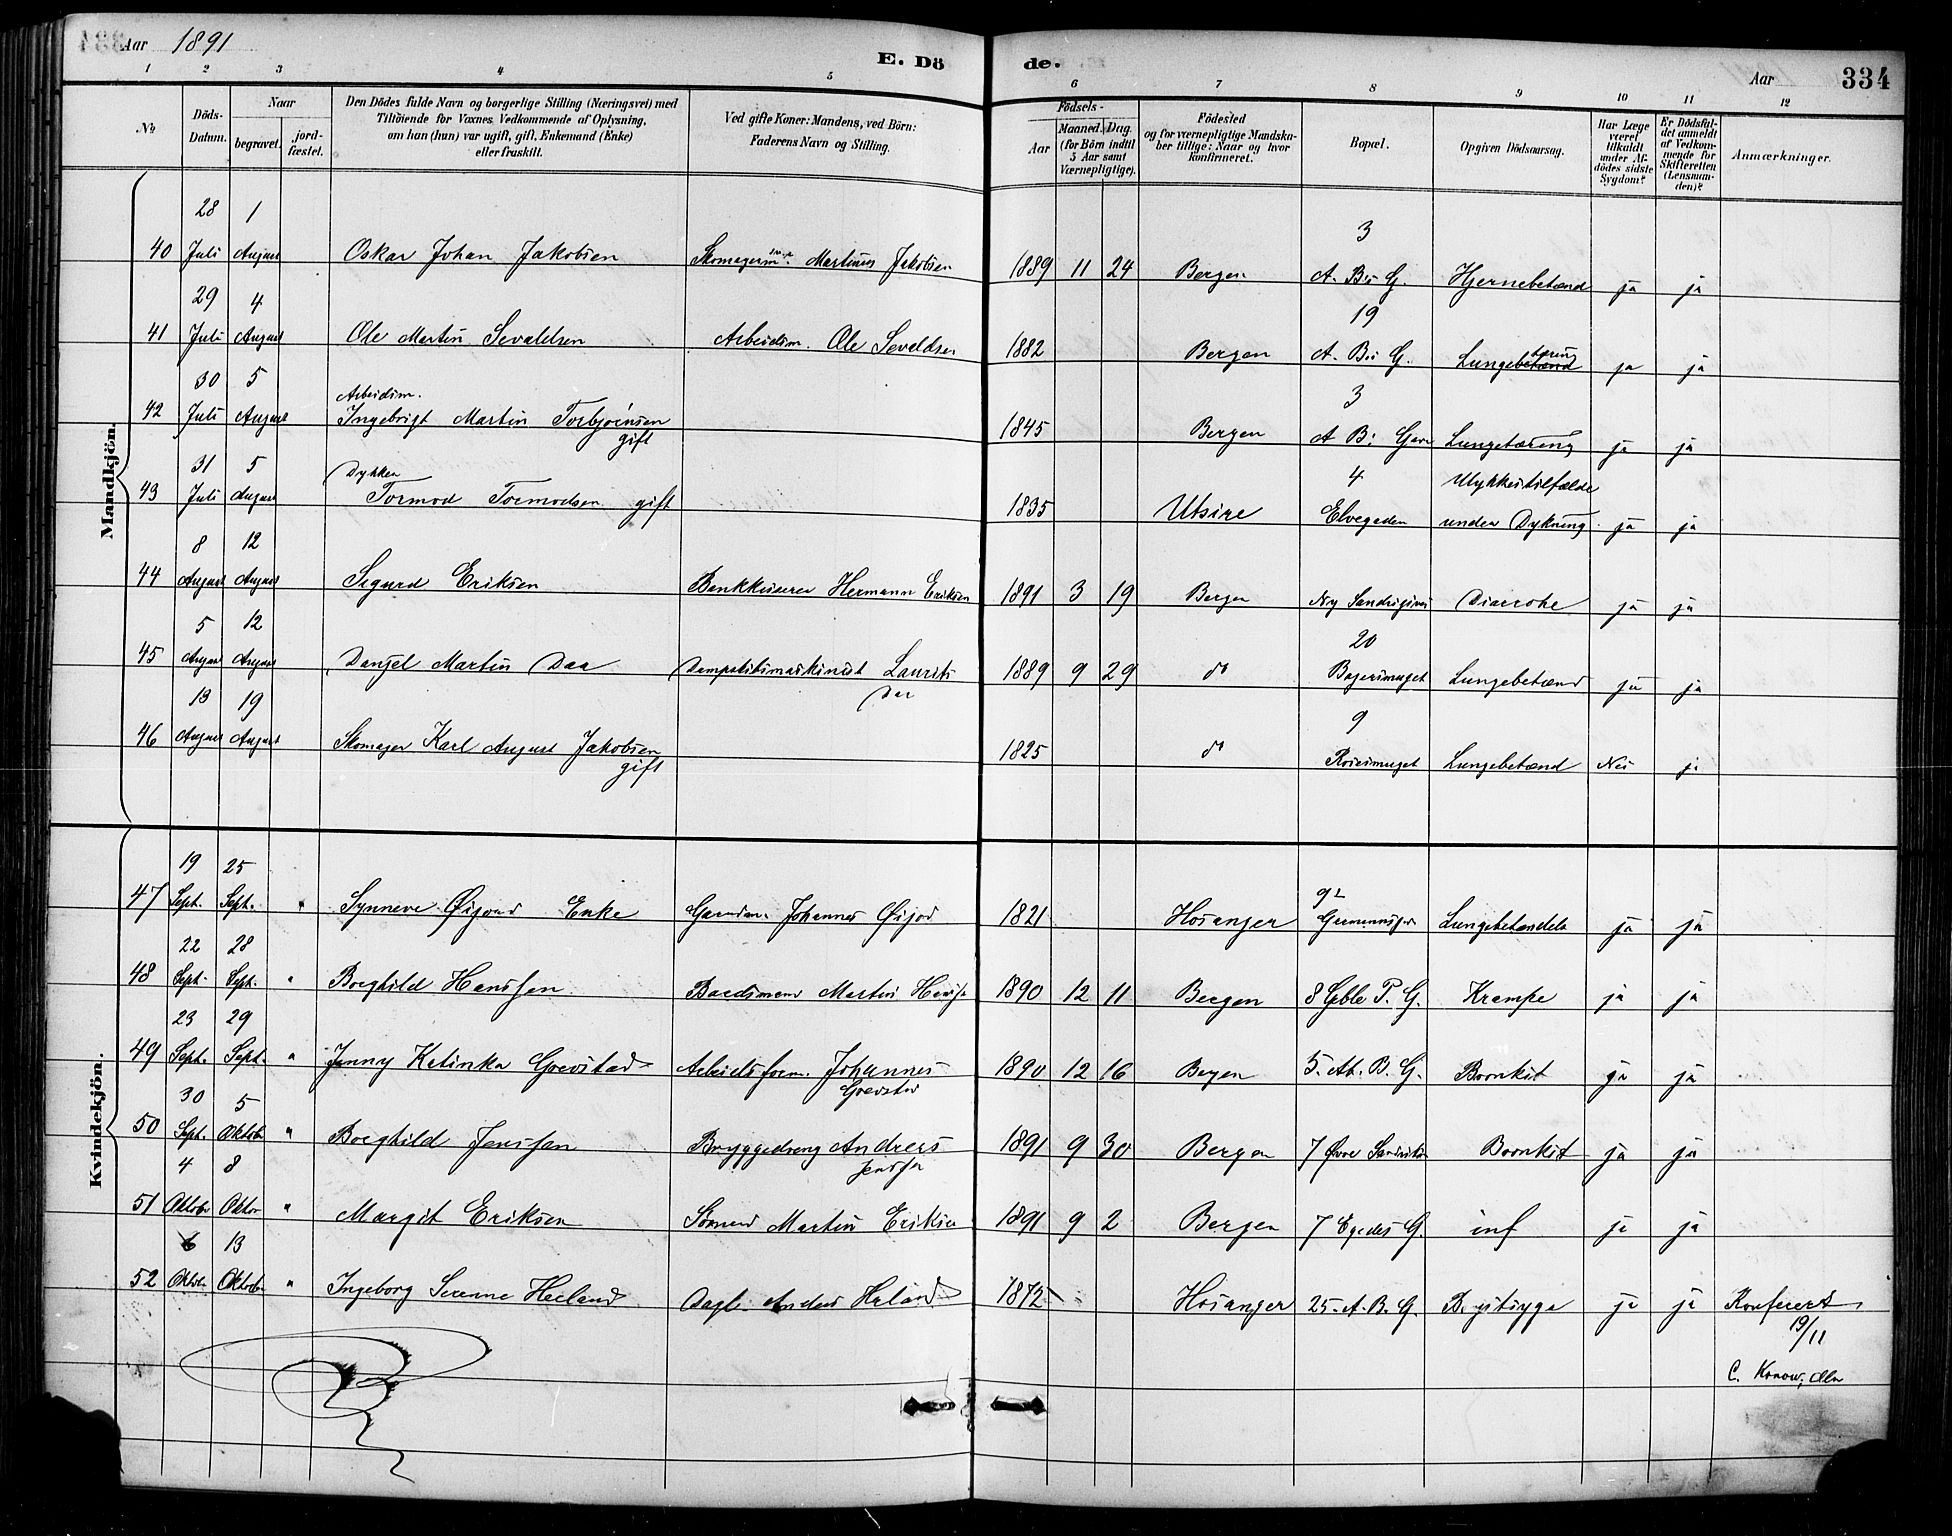 Aar 1891
E. Dö
de.
Aar
334
1 2 3 4 5 6 7 8 9 10 11 12
№
Döds-Datum.
Naar
begravet.
jord-fæstet.
Den Dödes fulde Navn og borgerlige Stilling (Næringsvei) med
Tilföiende for Voxnes Vedkommende af Oplysning,
om han (hun) var ugift, gift, Enkemand (Enke)
eller fraskilt.
Ved gifte Koner: Mandens, ved Börn:
Faderens Navn og Stilling.
Födsels-
Aar
Maaned. Dag.
(for Börn indtil
5 Aar samt
Værnepligtige).
Födested
og for værnepligtige Mandska-
ber tillige: Naar og hvor
konfirmeret.
Bopæl.
Opgiven Dödsaarsag.
Har Læge
været
tilkaldt
under Af-
dödes sidste
Sygdom?
Er Dödsfal-
det anmeldt
af Vedkom-
mende for
Skifteretten
(Lensman-
den)?
Anmærkninger.
Mandkjön.
28 1 3
40 Juli August Oskar Johan Jakobsen Skomagerm. Martinus Jakobsen 1889 11 24 Bergen A. Bs G. Hjernebetænd ja ja
29 4 19
41 Juli August Ole Martin Sevaldsen Arbeidsm. Ole Sevaldsen 1882 Bergen A. Bs G. Lungetæring ja ja
30 5 Arbeidsm. 3
42 Juli August Ingebrigt Martin Torbjörnsen 1845 Bergen A Bs Gade Lungetæring ja ja
gift
31 5 Dykker 4 Ulykkestilfælde
43 Juli August Tormod Tormodsen gift 1835 Utsire Elvegaden under Dykning ja ja
8 12
44 August August Sigurd Eriksen Bankkasserer Hermann Eriksen 1891 3 19 Bergen Ny Sandvigsvei Diarrohe ja ja
5 12 20
45 August August Danjel Martin Daa Dampskibsmaskinist Laurits 1889 9 29 do Bagersmuget Lungebetænd ja ja
Daa
13 19 9
46 August August Skomager Karl August Jakobsen 1825 do Rosesmuget Lungebetænd Nei ja
gift
Kvindekjön.
19 25 92
47 Sept. Sept. " Synneve Øigord Enke Gaardm. Johannes Øigod 1821 Hosanger Lungebetændels ja ja
22 28
48 Sept. Sept. " Borghild Hanssen Martin Hanss 1890 12 11 Bergen 8 Geble P. G. Krampe ja ja
23 29
49 Sept. Sept. " Jenny Katinka Grevstad Arbeidsform. Johannes 1890 12 16 Bergen 5. At. B. G. Bronkit ja ja
Grevstad
30 5
50 Sept. Oktob " Borghild Jenssen Bryggedreng Andreas 1891 9 30 Bergen 7 Øvre Sandviks Bronkit ja ja
Jenssen
4 8
51 Oktobr Oktor " Margit Eriksen Sömand Martin Eriksen 1891 9 2 Bergen 7 Egedes G. inf ja ja
6 13
52 Oktob Oktobr " Ingeborg Serenne Heeland Dagl. Anders Heland 1872 Hosanger 25. A. B. G. Brystsyge ja ja Konfereret
19/11
C. Konow,